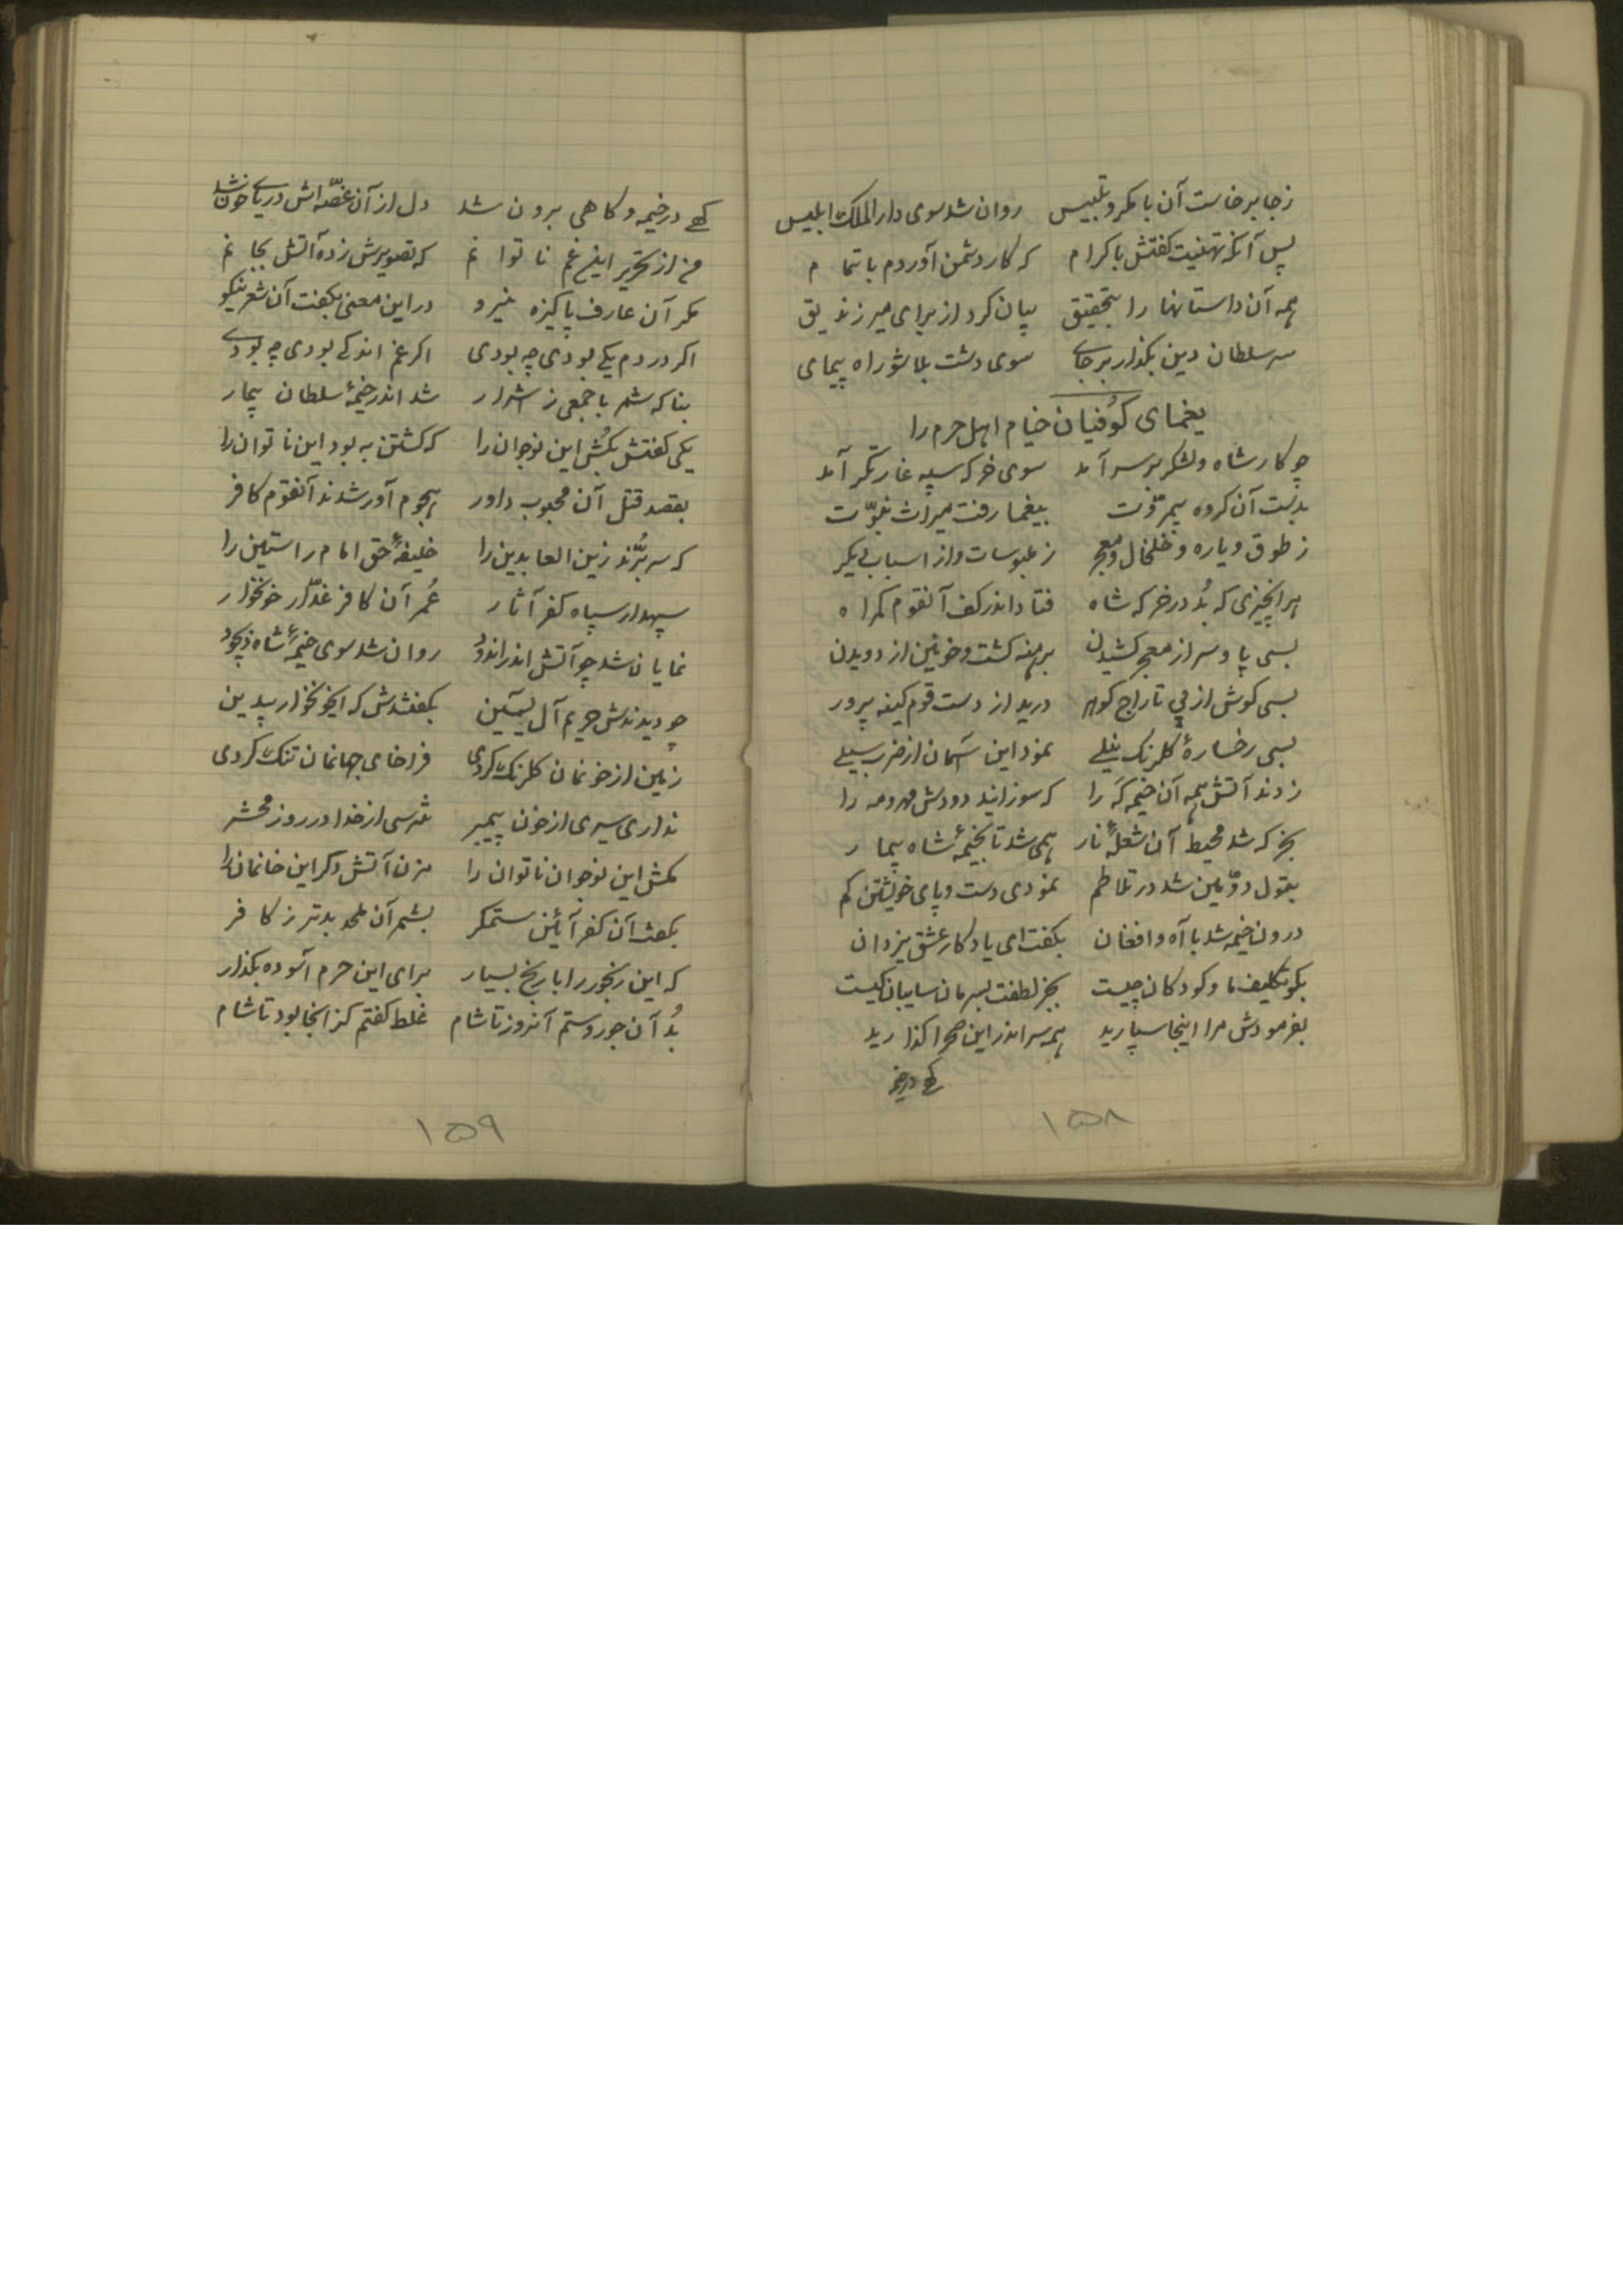 زجا برخاست آن با مکر و تلبیس روان شد سوی دار الملک ابلیس
پس آنکه تهنیت کفتش باکرام که کار دشمن آوردم باتمام
همه آن داستانها را بتحقیق بیان کرد از برای میر زندیق
سر سلطان دین بکذار برجای سوی دشت بلا شو راه پیمای
یغمای کوفیان خیام اهل حرم را
چو کار شاه و لشکر بر سر آمد سوی خرکه سپه غارتکر آمد
بدست آن کروه بیمروّت بیغما رفت میراث نبوّت
ز طوق و یاره و خلخال و معجر ز ملبوسات و از اسباب دیکر
هر انچیزی که بُد در خرکه شاه فتاد اندر کف آنقوم کمراه
بسی پا و سر از معجر کشیدن برهنه کشت و خونین از دویدن
بسی کوش از پی تاراج کوهر درید از دست قوم کینه پرور
بسی رخسارهٔ کلرنک نیلے نمود این آسمان از ضرب سیلے
زدند آتش همه آن خیمه کَه را که سوزانید دودش مهر و مه را
بخرکه شد محیط آن شعلهٔ نار همی شد تا بخیمهٔ شاه بیمار
بتول دوّمین شد در تلاطم نمودی دست و پای خویشتن کم
درون خیمه شد با آه و افغان بکفت ای یادکار عشق یزدان
بکو تکلیف ما و کودکان چیست بجز لطفت بسرمان سایبان کیست
بفرمودش مرا اینجا سپارید همه سر اندر این صحرا کذارید
کهے در خیمه
۱۵۸
کهے در خیمه و کاهی برون شد دل از آن غصّه اش دریاے خون شد
من از تحریر اینغم ناتوانم که تصویرش زده آتش بجانم
مکر آن عارف پاکیزه نیرو در این معنی بکفت آن شعر نیکو
اکر دردم یکے بودی چه بودی اکر غم اندکے بودی چه بودے
بناکه شمر با جمعی ز اشرار شد اندر خیمهٔ سلطان بیمار
یکی کفتش بکُش این نوجوان را که کشتن به بود این ناتوان را
بقصد قتل آن محبوب داور هجوم آور شدند آنقوم کافر
که سر بُرّند زین العابدین را خلیفهٔ حق امام راستین را
سپهدار سپاه کفر آثار عُمر آن کافر غدّار خونخوار
نمایان شد چو آتش اندر اندود روان شد سوی خیمهٔ شاه ذیجود
چو دیدندش حریم آل یسین بکفتندش که ایخونخوار بیدین
زمین از خونمان کلرنک کردی فراخای جهانمان تنک کردی
نداری سیری از خون پیمبر نترسی از خدا در روز محشر
مکش این نوجوان ناتوان را مزن آتش دکر این خانمان را
بکفت آن کفر آئین ستمکر بشمر آن ملحد بدتر ز کافر
که این رنجور را با رنج بسیار برای این حرم آسوده بکذار
بُد آن جور و ستم آنروز تا شام غلط کفتم کز انجا بود تا شام
۱۵۹